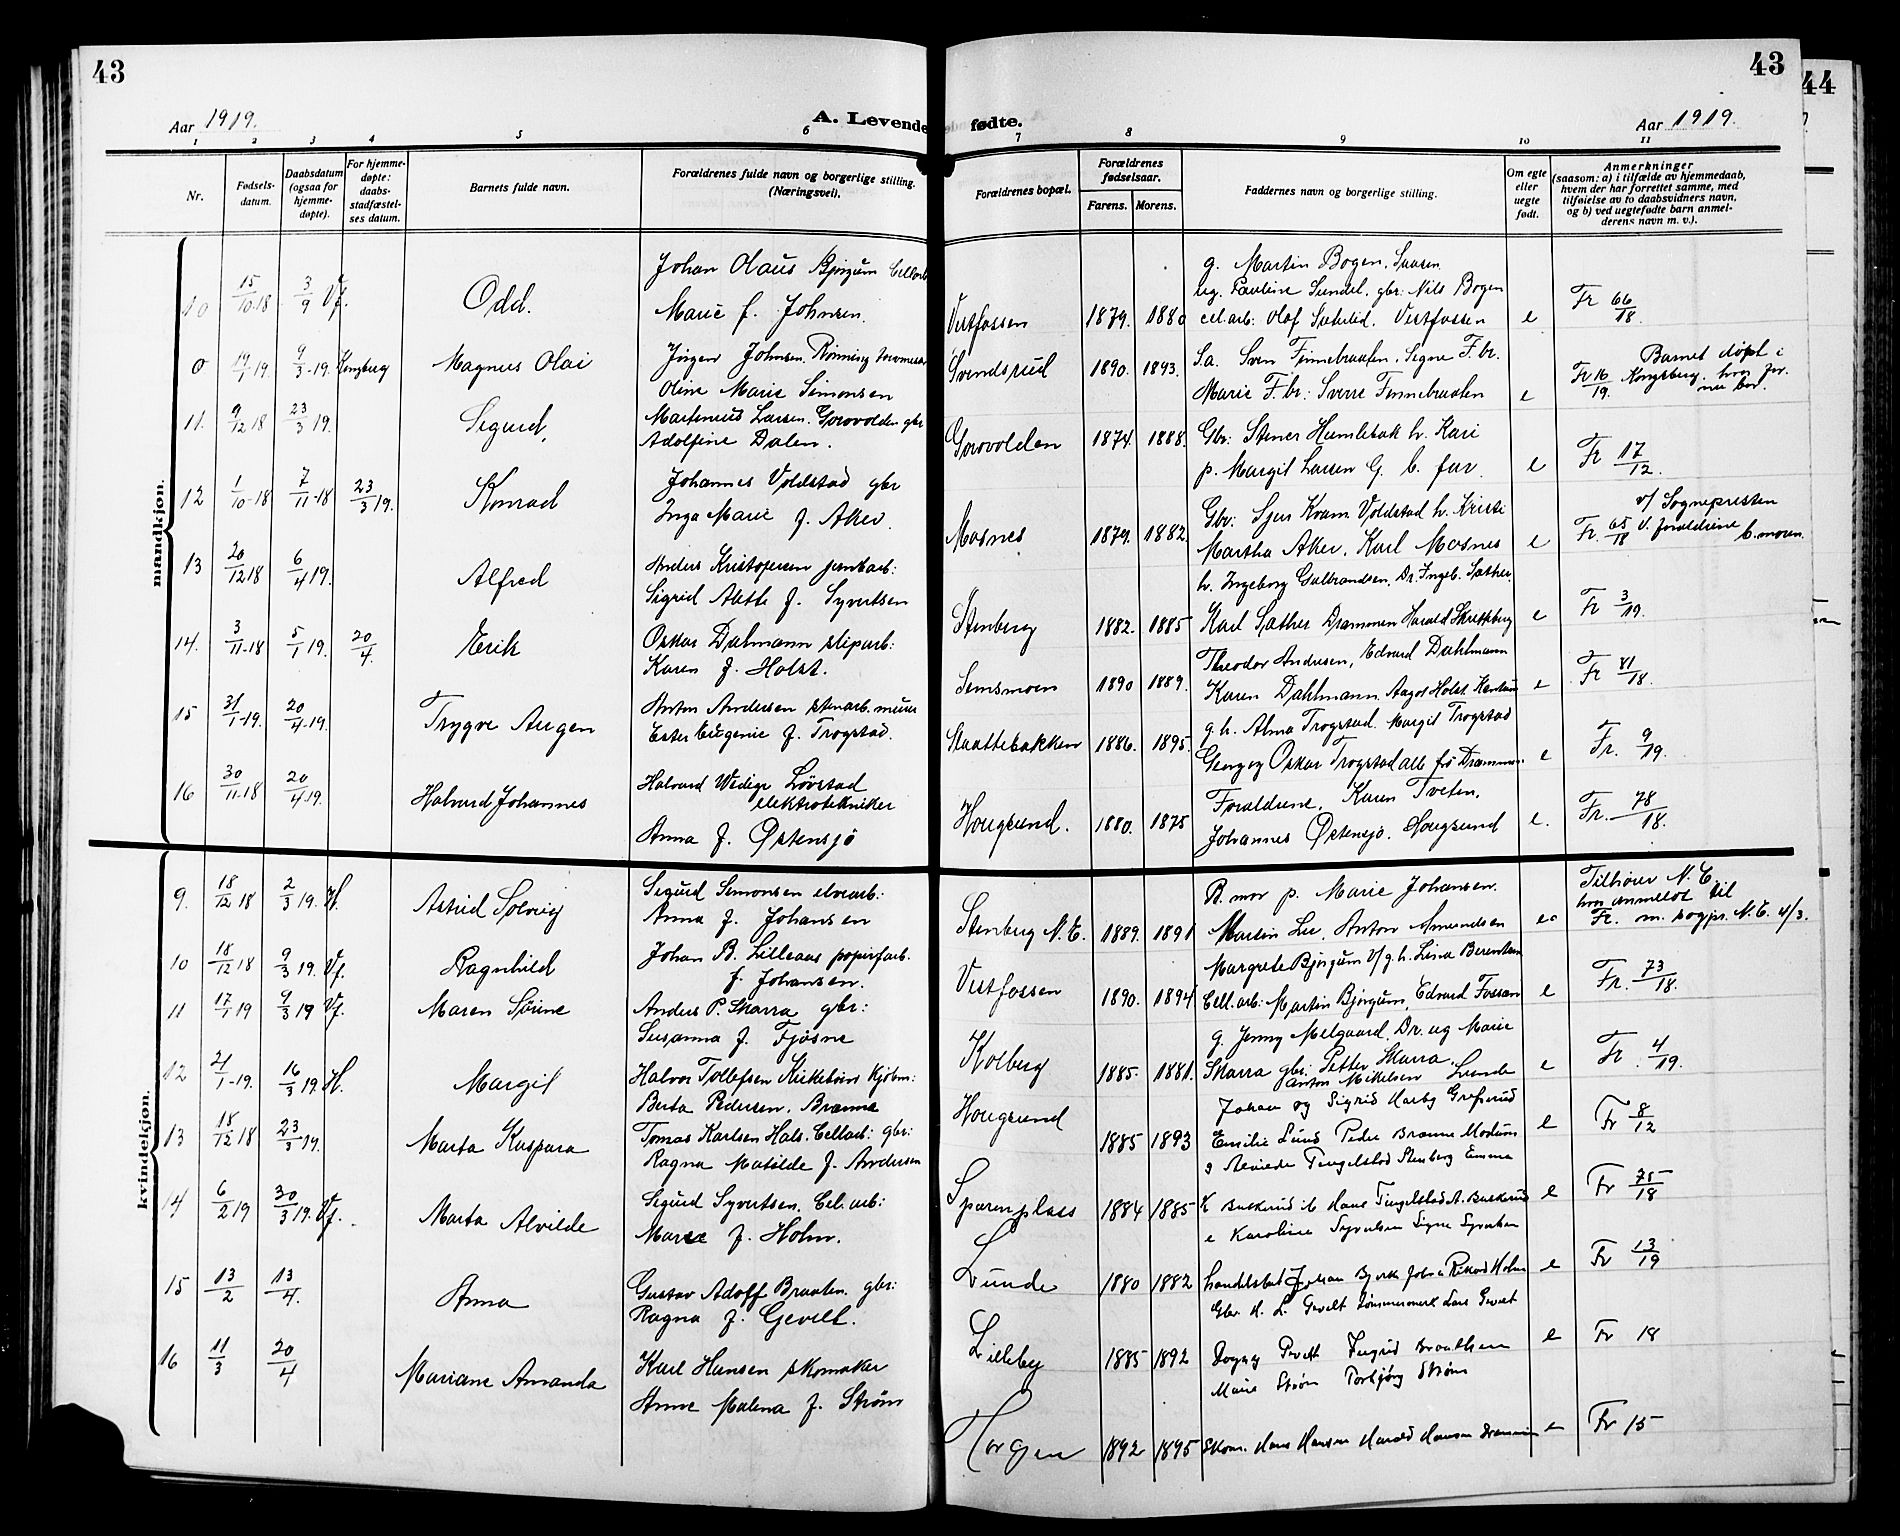 43
43
44
Aar 1919.
A. Levende fødte.
Aar 1919.
1 2 3 4 5 6 7 8 9 10 11
Nr.
Fødsels-
datum.
Daabsdatum
(ogsaa for
hjemme-
døpte).
For hjemme-
døpte:
daabs-
stadfæstel-
ses datum.
Barnets fulde navn.
Forældrenes fulde navn og borgerlige stilling.
(Næringsvei).
Forældrenes bopæl.
Forældrenes
fødselsaar.
Farens. Morens.
Faddernes navn og borgerlige stilling.
Om egte
eller
uegte
født.
Anmerkninger
(saasom: a) i tilfælde av hjemmedaab,
hvem der har forrettet samme, med
tilføielse av to daabsvidners navn,
og b) ved uegtefødte barn anmel-
derens navn m. v.).
mandkjøn.
10 15/10 18 3/9 Vf. Odd.
Johan Olaus Bjørgum
Marie f. Johnsen.
Vestfossen 1879. 1880
g. Martin Bogen,
ug. Pauline Sundel. gbr. Nils Bogen
cel.arb. Olaf Sæterlid. Vestfossen e
Fr 66/18.
0 14/1 19. 9/3-19. Kongsberg Magnus Olai
Jørgen Johnsen Rønning
Oline Marie Simonsen
Svendsrud 1890. 1893.
Sa. Sven Finnebraaten, Signe F.br.
Marie F.br: Sverre Finnebraaten e
Fr 16/19. Barnet døpt i
Kongsberg. hvor for.
nu bor.
11. 9/12 18 23/3 19. Sigurd,
Martinius Larsen. Gorovolden gbr
Adolfine Dalen.
Gorovolden 1874. 1888.
Gbr: Stener Humlebak h. Kari
p. Margit Larsen G. b. far e
Fr 17/12.
12 1/10-18 7/11-18 23/3 19. Konrad
Johannes Voldstad gbr
Inga Marie f. Aker.
Mosnes 1879. 1882.
Gbr: Sjur Kvam Voldstad h. Kristi
Martha Aker. Karl Mosnes e
v/ Sognepresten
Fr. 65/18 v. forældrene b. moren.
13 20/12 18 6/4 19. Alfred
Anders Kristofersen jernbarb:
Sigrid Alette f. Syvertsen
Stenberg 1882. 1885
h. Ingeborg Gulbrandsen, Dr. Ingeb. Sæther
Karl Sæther Drammen Harald e
Fr 3/19.
14. 3/11-18 5/1 19. 20/4. Erik
Oskar Dahlmann sliparb:
Karen f. Holst.
Semsmoen 1890 1889.
Theodor Andersen, Edvard Dahlmann
Karen Dahlmann. Aagot Holst e
Fr 81/18.
15 31/1-19. 20/4-19. Trygve Augen
Anton Andersen stenarb. murer
Ester Eugenie f. Trogstad.
Slaattebakken 1886. 1895.
g.h. Alma Trogstad. Margit Trogstad
Georg og Oskar Trogstad alle fra Drammen e
Fr. 9/19.
16 30/11-18 20/4-19. Halvard Johannes
Halvard Wedige Lövstad
elektrotekniker
Anna f. Østensjö
Hougsund. 1880. 1875
Forældrene. Karen Tveten.
Johannes Østensjø. Hougsund e.
Fr. 78/18.
kvindekjøn.
9. 18/12 18 2/3 19. H. Astrid Solveig
Sigurd Simonsen elvearb:
Anna f. Johansen
Stenberg N.E. 1889. 1891
B. mor p. Marie Johansen.
Martin Lie, Anton Amundsen
Tilhører N.E.
hvor anmeldt til
Fr. m. sogpr. N.E. 4/3.
10 18/12 18 9/3 19. Vf. Ragnhild
Johan B. Lilleaas papirfarb.
f. Johansen.
Vestfossen 1890. 1894
Margrete Bjørgum V/g.h. Lina Berentsen
Cell.arb: Martin Bjørgum, Edvard Fossan e
Fr. 73/18.
11 17/1 19 9/3 19 Vf. Maren Sörine
Anders P. Skarra gbr:
Susanna f. Fjösne
Kolberg 1885. 1881.
g. Jenny Melgaard, Dr. ug Marie
Skarra gbr. Petter Skarra. e
Fr. 4/19.
12 21/1-19. 16/3 19. H. Margit
Halvor Tollefsen Kirkebøen kjøbm:
Berta Pedersen, Brænne
Hougsund 1885 1893
Anton Mikelsen Lunde
Johan og Sigrid Harby Grefsrud
Emilie Lund Peder Brænne Modum e
Fr 8/12
13 18/12 18 23/3 19. Marta Kaspara
Tomas Karlsen Hals. Cellarb: gbr:
Ragna Matilde f. Andersen
Sparenplass 1884 1885
g Alvilde Tengelstad Stenberg Emma
K Buskerud Hans Tengelstad A. Buskerud e
Fr 75/18
14 6/2 19 30/3 19. Vf. Marta Alvilde
Sigurd Syvertsen. Cel.arb:
Marie f. Holm.
Lunde 1880 1882
e Karoline Syvertsen Signe Syvertsen
Handelsbet Johan Bjerke Rikard Holm e
Fr 13/19
15 13/2 13/4. Anna
Gustav Adolf Braaten. gbr:
Ragna f. Gevelt.
Lilleby 1885 1892
Gbr. H. L. Gevelt Tømmermerk Lars Gevelt
Dagny Gevelt Ingrid Braathen e
Fr 18
16 11/3 20/4 Mariane Amanda
Karl Hansen skomaker
Anne Malena f. Ström
Horgen 1892 1895
Marie Strøm Torbjørg Strøm
Skom. Hans Hansen Harald Hansen Drammen e
Fr 15